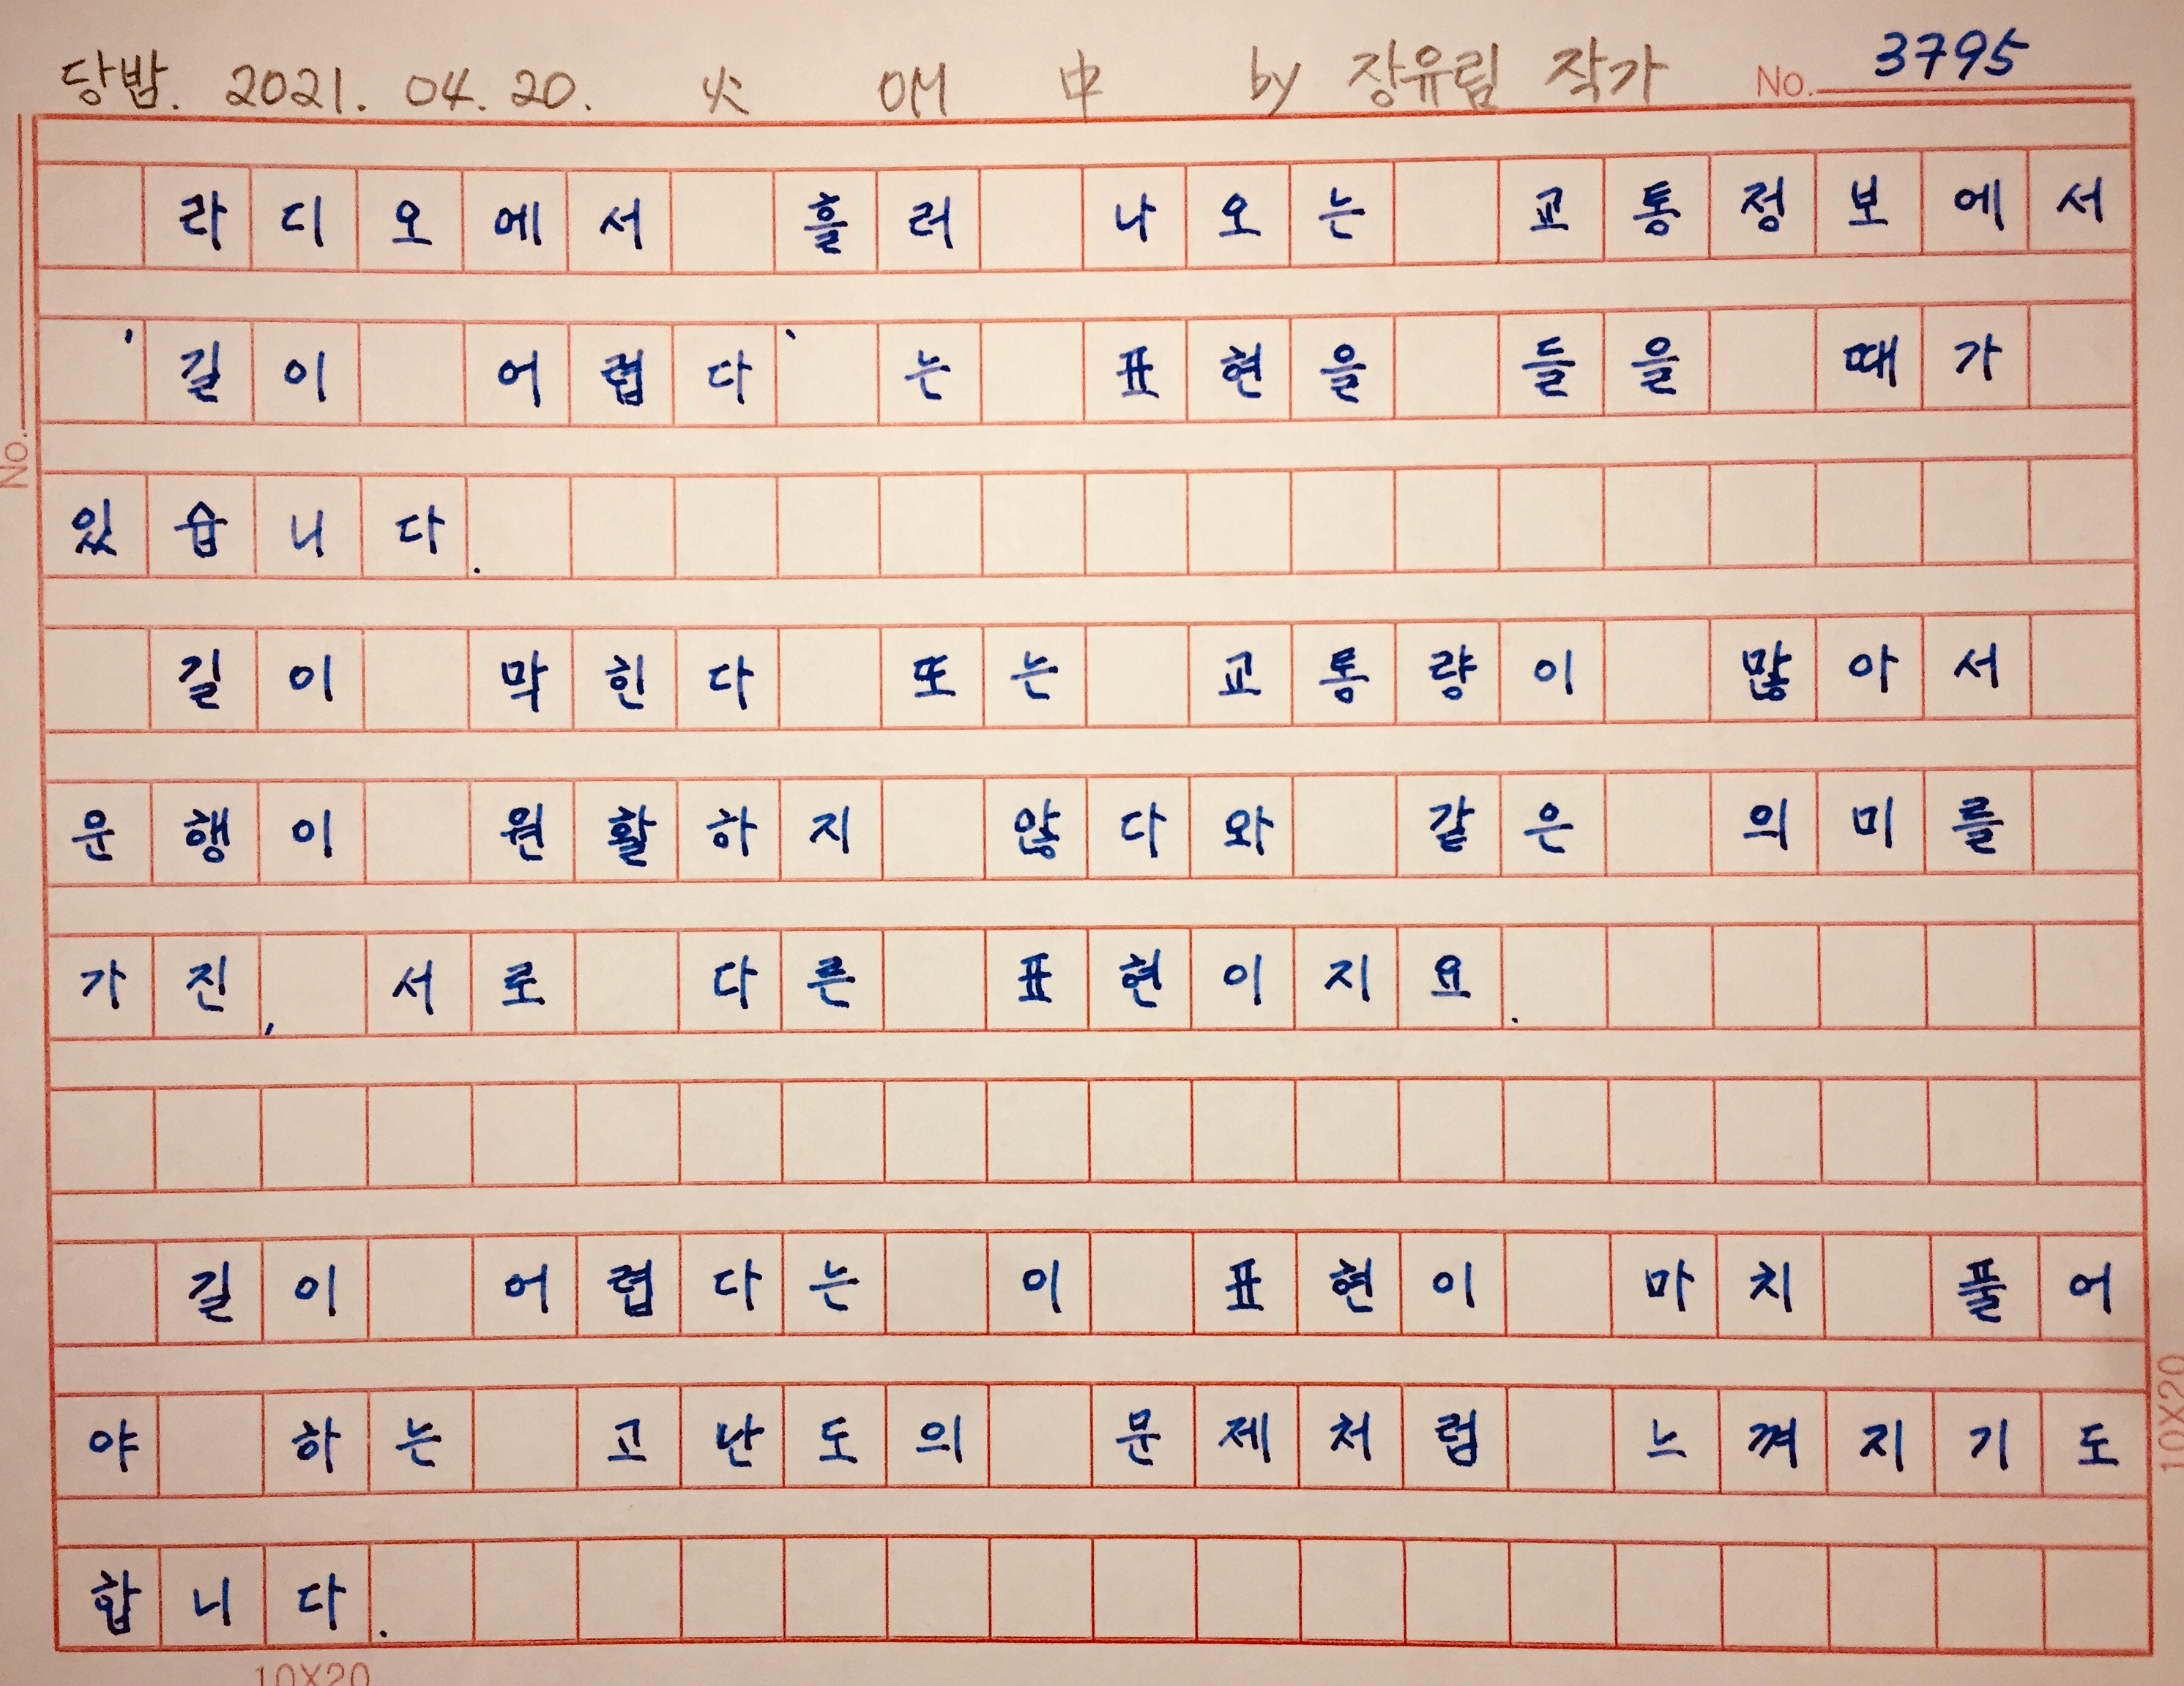 당밤. 2021. 04. 20. 火 애 中 by 장유림 작가 No. 3795
라디오에서 흘러 나오는 교통정보에서
'길이 어렵다'는 표현을 들을 때가
있습니다.
길이 막힌다 또는 교통량이 많아서
운행이 원활하지 않다와 같은 의미를
가진, 서로 다른 표현이지요.
길이 어렵다는 이 표현이 마치 풀어
야 하는 고난도의 문제처럼 느껴지기도
합니다.
No.
10X20
10X20